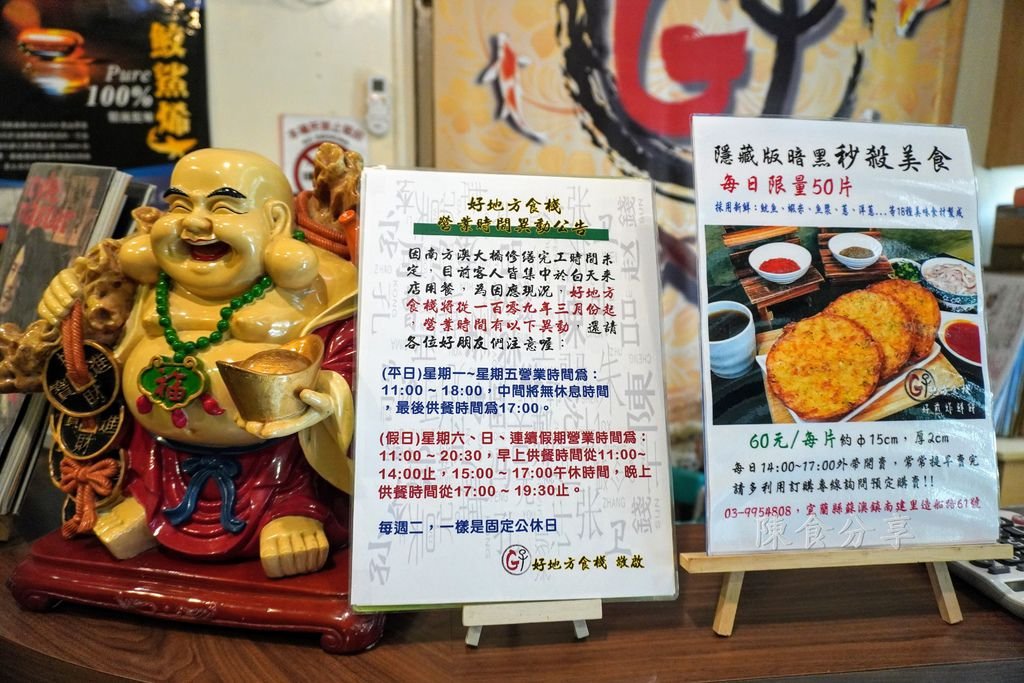 Pure
100%
福
好地方食棧
營業時間異動公告
因南方澳大橋修繕完工時間未
定，目前客人皆集中於白天來
店用餐，為因應現況，好地方
食棧將從一百零九年三月份起
，營業時間有以下異動，還請
各位好朋友們注意喔：
(平日)星期一~星期五營業時間為：
11:00 ~ 18:00，中間將無休息時間
，最後供餐時間為17:00。
(假日)星期六、日、連續假期營業時間為：
11:00 ~ 20:30，早上供餐時間從11:00~
14:00止，15:00 ~ 17:00午休時間，晚上
供餐時間從17:00 ~ 19:30止。
每週二，一樣是固定公休日
好地方食棧 敬啟
隱藏版暗黑秒殺美食
每日限量50片
採用新鮮：魷魚、蝦赤、魚漿、蔥、洋蔥...等18種美味食材製成
60元/每片 約φ15cm，厚2cm
每日14:00~17:00外帶開賣，常常提早賣完
請多利用訂購專線詢問預定購買!!
03-9954808，宜蘭縣蘇澳鎮南建里造船路61號
陳食分享